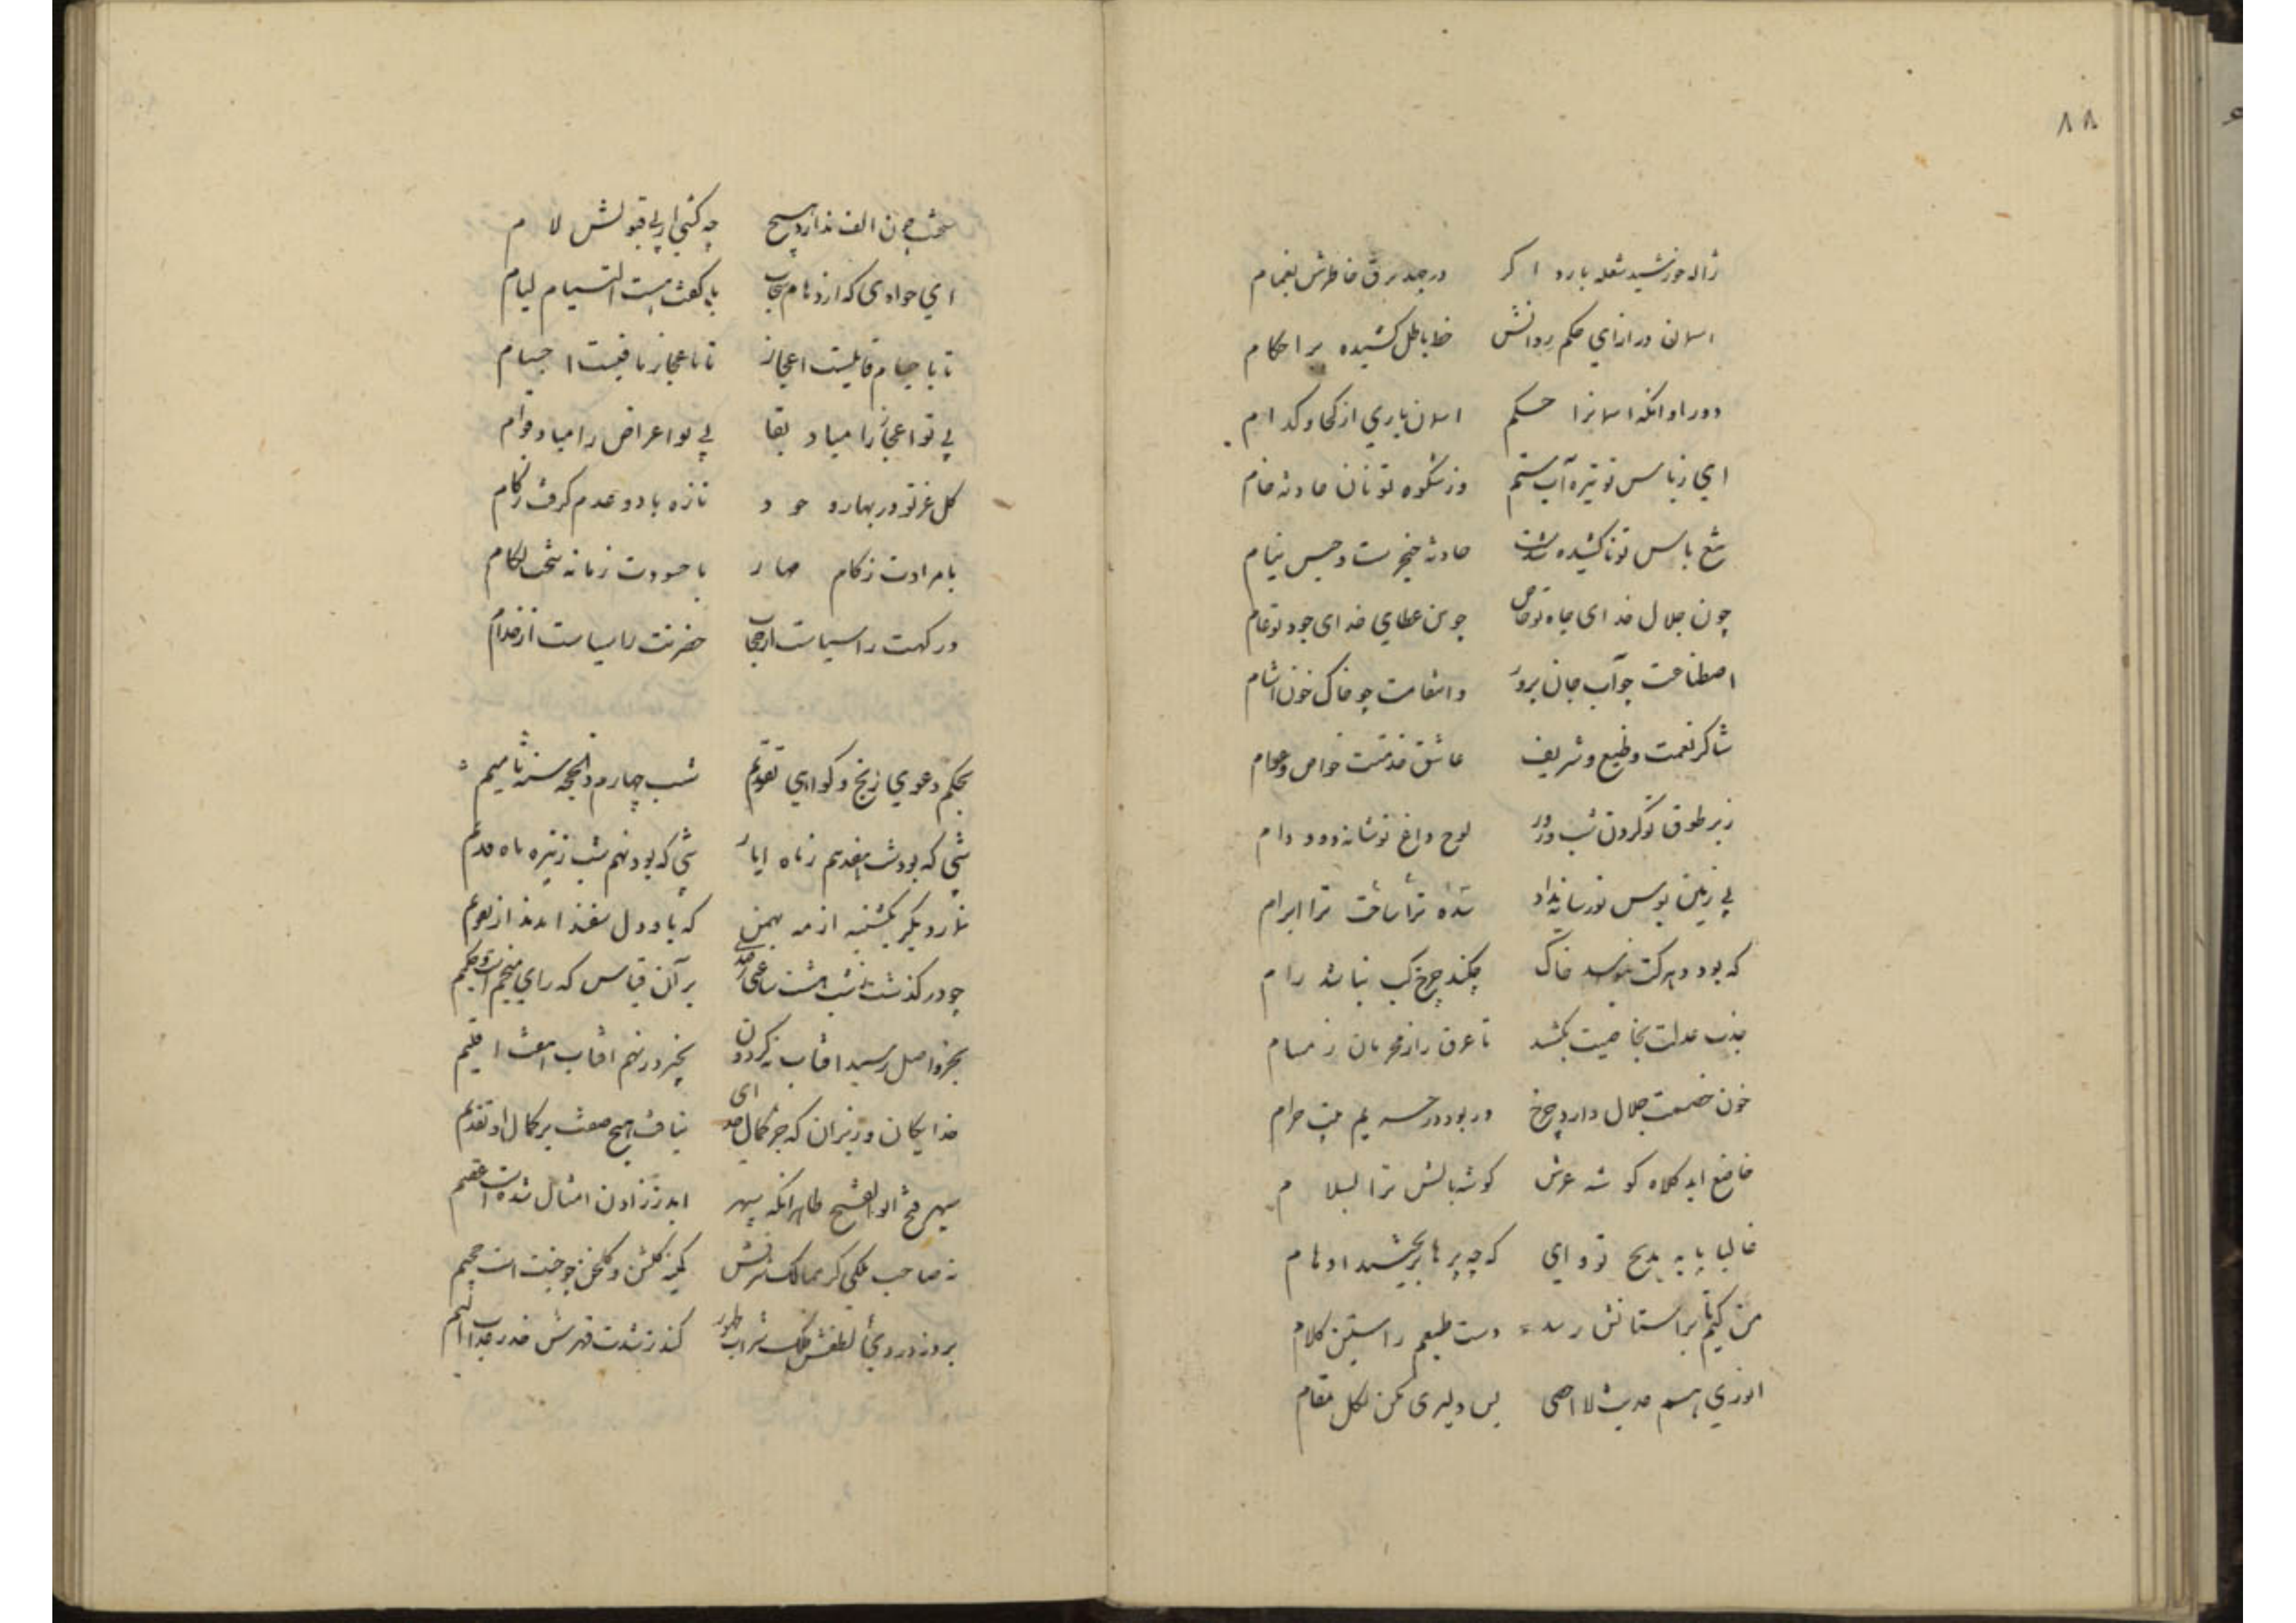 ۸۸
ژاله خورشید شعله بارد اگر درجهد برق خاطرش بغمام
اسمان در ازای حکم روانش خط باطل کشیده بر احکام
دور او انکه اسمانرا حکم اسمان باری از کجا و کدام
ای ز باس تو تیره آب ستم وز شکوه تو نان حادثه خام
تیغ باس تو تا کشیده شدست حادثه خنجرست و حبس نیام
چون جلال خدای جاه تو خاص چون عطای خدای جود تو عام
اصطناعت چو آب جان پرور وانتقامت چو خاک خون اشام
شاکر نعمت وضیع و شریف عاشق خدمتت خواص و عوام
زیر طوق تو کردن شب و روز لوح داغ تو شانه دد و دام
بی زمین بوس نور سایه نداد سده ترا ساخت ترا ابرام
که بود دهر کت نبوسد خاک چکند چرخ کت نباشد رام
جذب عدلت بخاصیت بکشد تا عرق راز مجرمان ز مسام
خون خصمت حلال دارد چرخ ور بود در حریم بیت حرام
خاضع اید کلاه کوشه عرش کوشه بالش ترا بسلام
غالبا پایه مدیح تو وای که چه پرها بریختند اوهام
من کیم تا براستانش رسد دست طبعم راستین کلام
انوری هم حدیث لا احصی بس دلیری مکن لکل مقام
سخت چون الف ندارد هیچ چه کشی از پی قبولش لام
ای جوادی که از دهام سحاب با کفت هست التسیام لیام
تا با جسام قایلیست اعجاز تا باعجاز باقیست اجسام
بی تو اعجاز را مباد بقا بی تو اعراض را مباد قوام
کل عز تو در بهار وجود تازه باد و عدم کرفته زکام
با مرادت زکام صار با حسودت زمانه سخت لکام
درکهت را سیاست از حجاب حضرتت را سیاست از خدام
بحکم دعوی زیج و کواهی تقویم شب چهارم ذالحجه سنه ثامیم
شبی که بود شب هفدهم ز ماه ایار شبی که بود نهم شب ز تیره ماه قدیم
نماز دیکر یکشنبه از مه بهمن که با و دل سفنداند از تقویم
چو در کذشت ز شب هشت ساعتی رصدی بر آن قیاس که رای منجمست و حکیم
بجزو اصل رسید افتاب نه کردون بخیر در نهم افتاب هفت اقلیم
خدایکان وزیران که جز کمال خدای نیافت هیچ صفت بر کمال او تقدیم
سپهر فتح ابوالفتح طاهر انکه سپهر ابد ز زادن امثال او شده است عقیم
نه صاحب ملکی کز ممالک شرفش کمینه کلشن و کلخن چو جنت است و جحیم
برد ز دردی لطفش ملک شراب طهور کند ز شدت قهرش حذر عذاب الیم